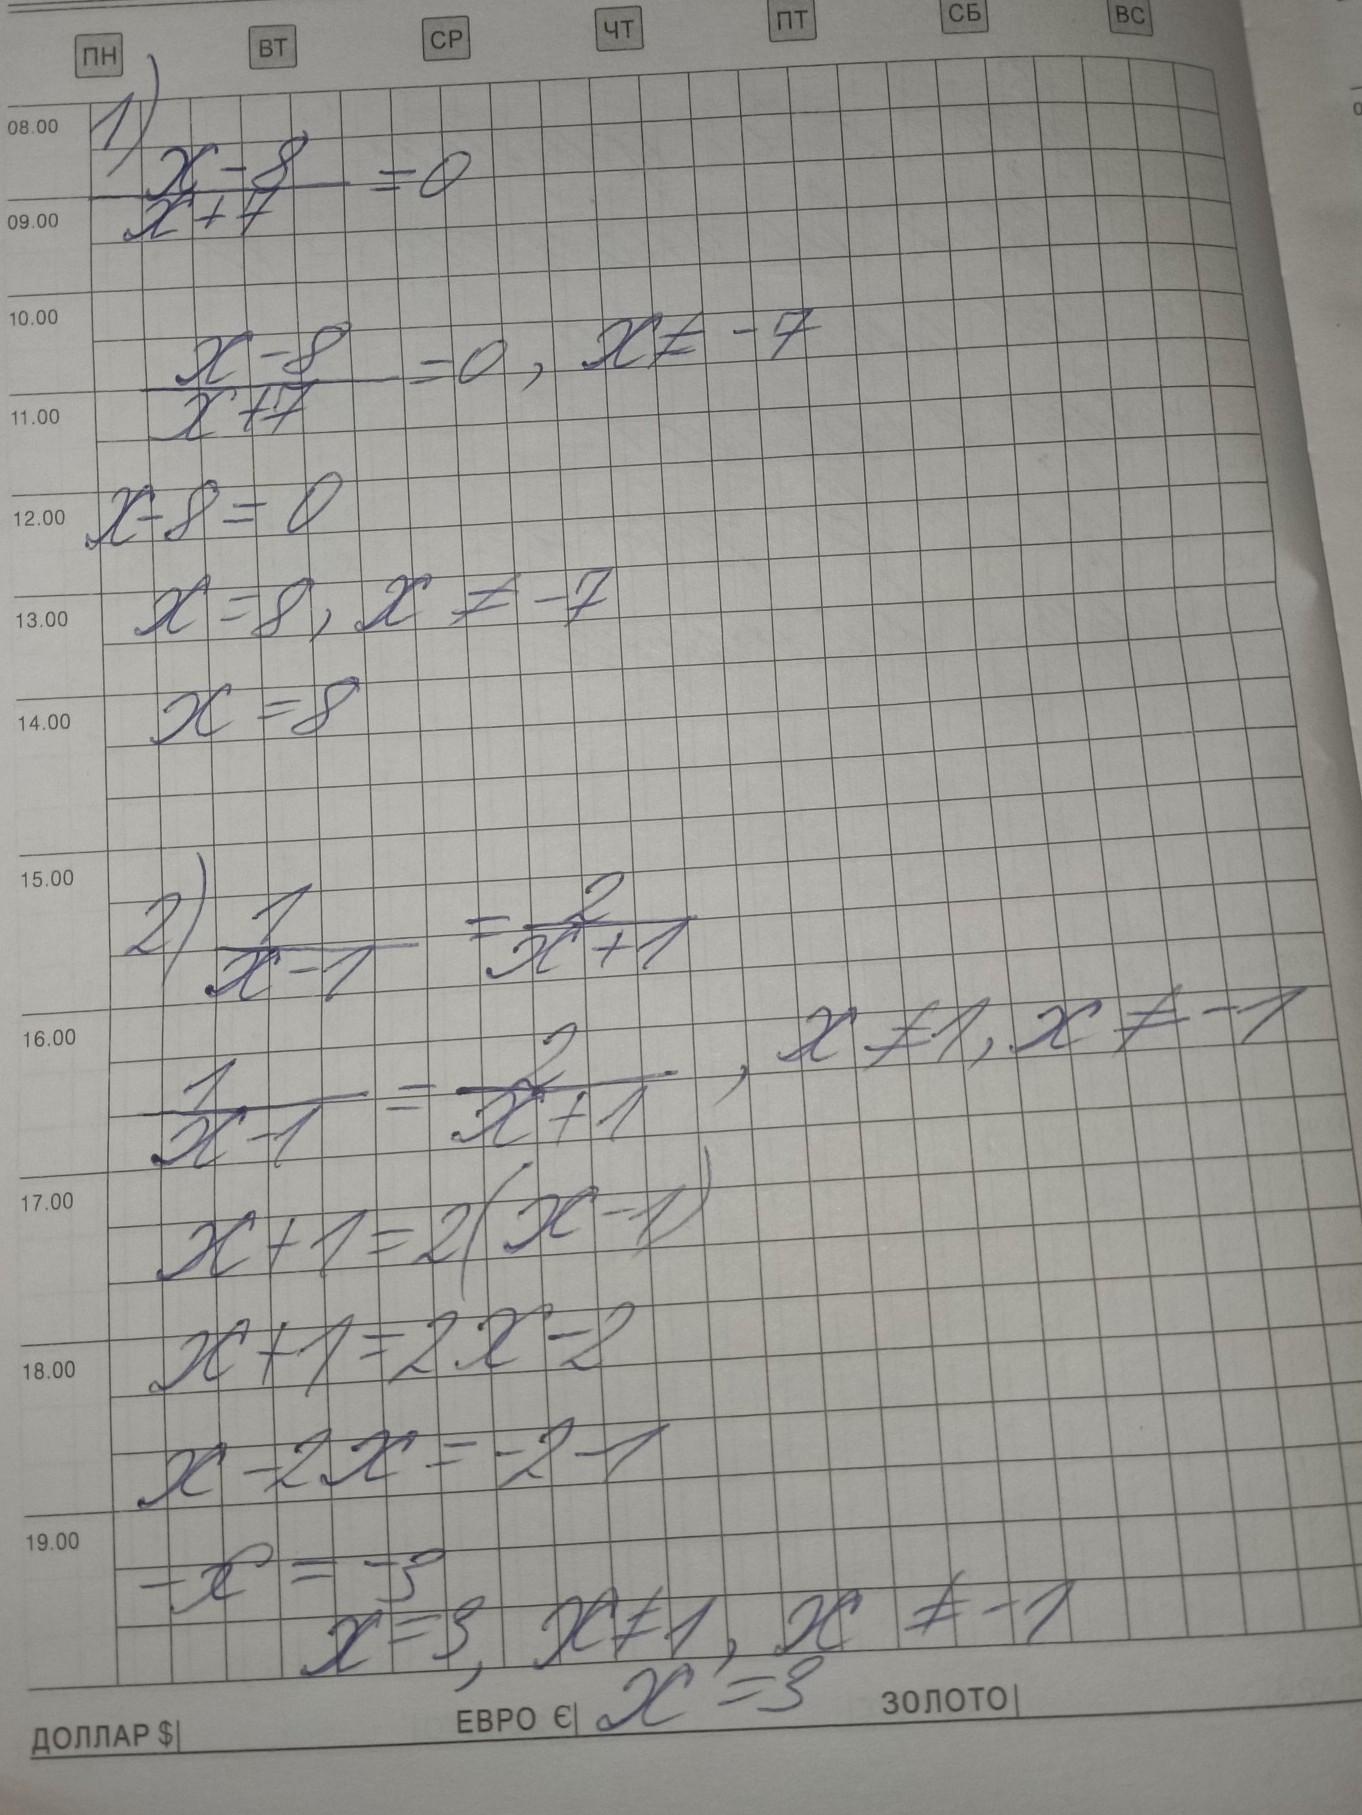 ПН ВТ СР ЧТ ПТ СБ ВС
08.00
1)
x-8/x+7 = 0
09.00
10.00
x-8/x+7 = 0, x ≠ -7
11.00
12.00
x-8 = 0
13.00
x = 8, x ≠ -7
14.00
x = 8
15.00
2) 1/x-1 = 2/x+1
16.00
1/x-1 = 2/x+1, x ≠ 1, x ≠ -1
17.00
x+1 = 2(x-1)
18.00
x+1 = 2x-2
x-2x = -2-1
19.00
-x = -3
x = 3, x ≠ 1, x ≠ -1
x = 3
ДОЛЛАР $| ЕВРО €| ЗОЛОТО|